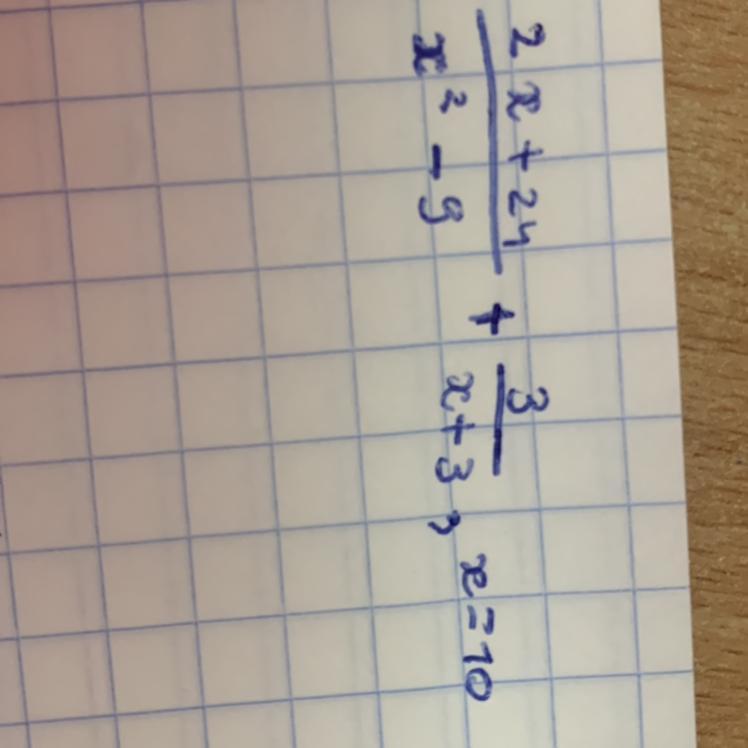 2x+24 / x² - 9 + 3 / x+3 , x=10